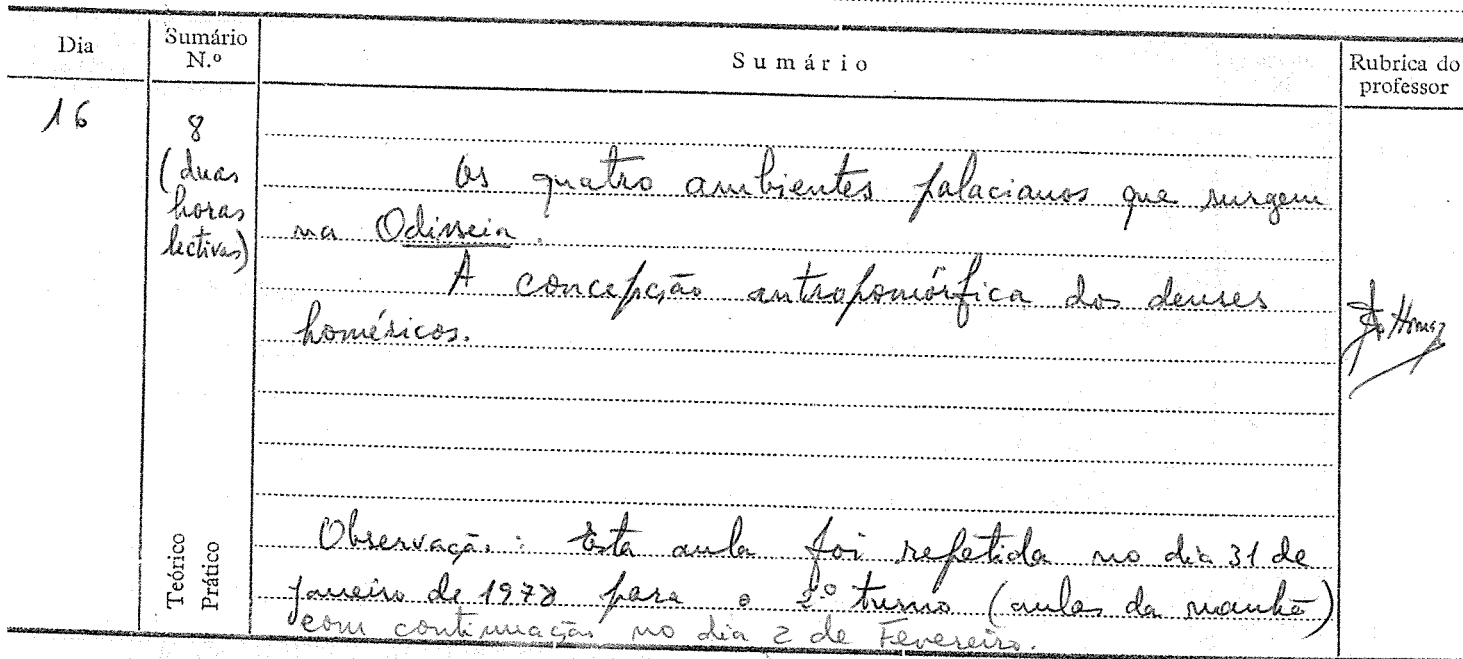 Dia
Sumário
N.º
Sumário
Rubrica do
professor
16
8
(duas
horas
lectivas)
Os quatro ambientes palacianos que surgem
na Odisseia.
A concepção antropomórfica dos deuses
homéricos.
Teórico
Prático
Observação: Esta aula foi repetida no dia 31 de
janeiro de 1978 para o 2º turno (aulas da manhã)
com continuação no dia 2 de Fevereiro.